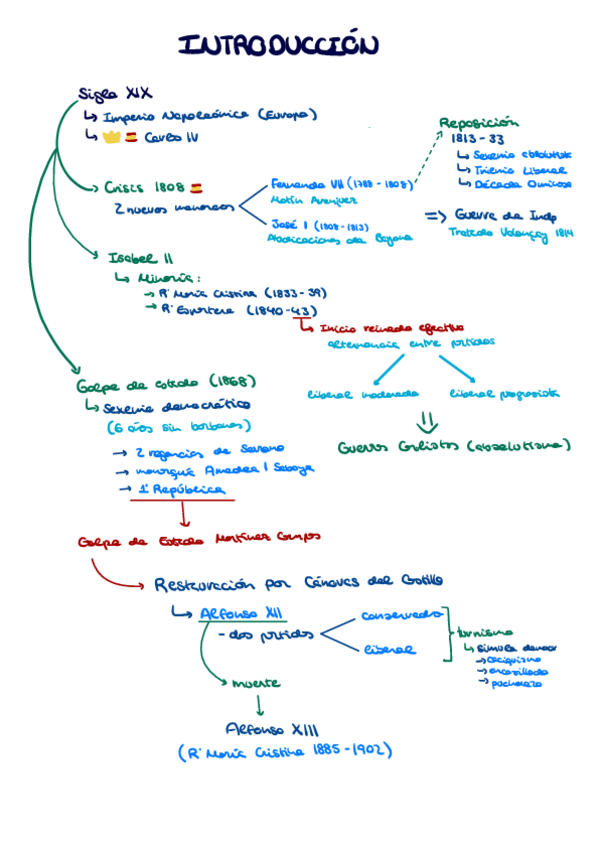 INTRODUCCIÓN
Siglo XIX
↳ Imperio Napoleónico (Europa)
↳ Carlos IV
→ Crisis 1808
2 nuevos monarcas
Fernando VII (1788 - 1808)
Motín Aranjuez
José I (1808-1813)
Abdicaciones de Bayona
Reposición
1813 - 33
↳ Sexenio absolutista
↳ Trienio Liberal
↳ Década Ominosa
=> Guerra de Indp
Tratado Valençay 1814
Isabel II
↳ Minoría:
→ Rª María Cristina (1833 - 39)
→ Rª Espartero (1840-43)
↳ Inicio reinado efectivo
alternancia entre partidos
liberal moderado
liberal progresista
Guerras Carlistas (absolutismo)
Golpe de estado (1868)
↳ Sexenio democrático
(6 años sin borbones)
→ 2 regencias de Serrano
→ monarquía Amadeo I Saboya
→ 1ª República
Golpe de Estado Martínez Campos
Restauración por Cánovas del Castillo
↳ Alfonso XII
- dos partidos
conservador
liberal
turnismo
↳ simula democr
→ caciquismo
→ encasillado
→ pucherazo
muerte
Alfonso XIII
(Rª María Cristina 1885 - 1902)